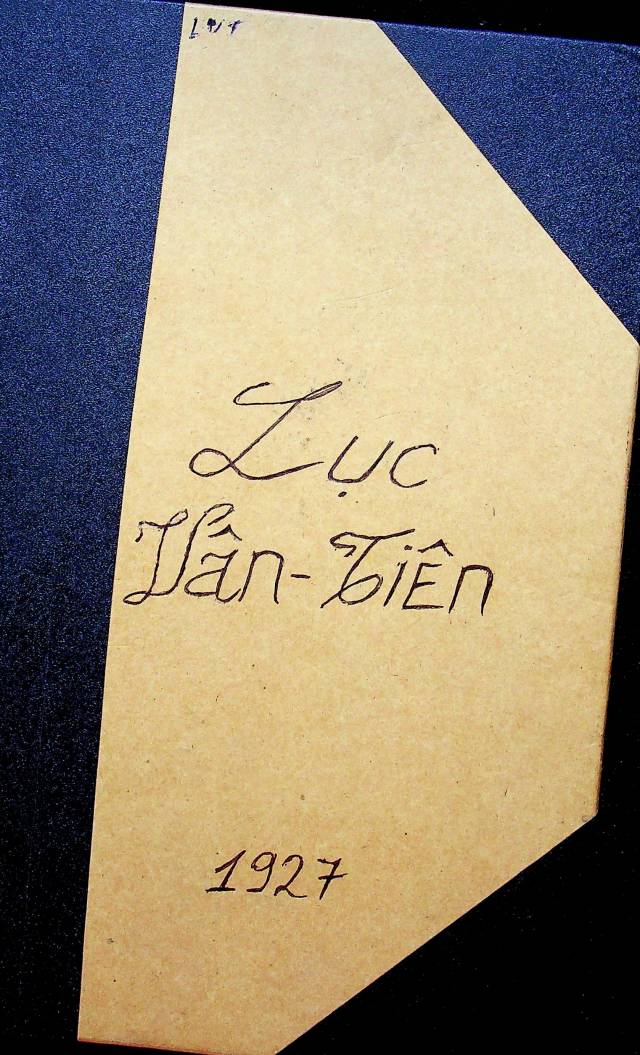 LVT
Lục
Vân-Tiên
1927